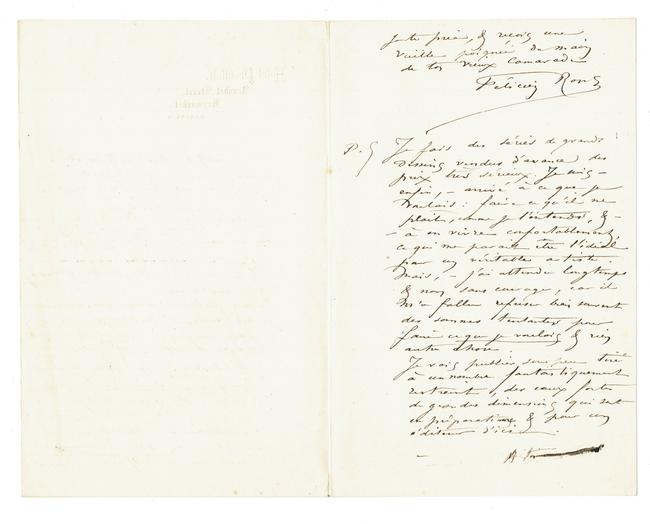 je te prie, & reçois une
vieille poignée de main
de ton vieux camarade
Félicien Rops
P.S Je fais des séries de grands
dessins vendus d'avance des
prix très sérieux. Je suis
enfin, – arrivé à ce que je
voulais : faire ce qu'il me
plait, comme je l'entends, & –
– à en vivre confortablement,
ce qui me parait être l'idéal
pour un véritable artiste.
Mais, – j'ai attendu longtemps
& non sans courage, car il
m'a fallu refuser bien souvent
des sommes tentantes pour
faire ce que je voulais & rien
autre chose.
Je vais publier sous peu tiré
à un nombre fantastiquement
restreint, des eaux fortes
de grandes dimensions qui sont
en préparation & pour un
éditeur d'ici.